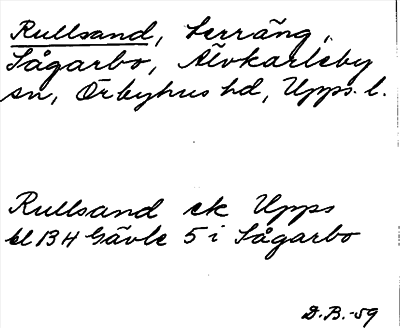 Rullsand, terräng,
Sågarbo, Älvkarleby
sn, Örbyhus hd, Upps. l.
Rullsand ek Upps
bl 13 H Gävle 5 i Sågarbo
D.B.-59